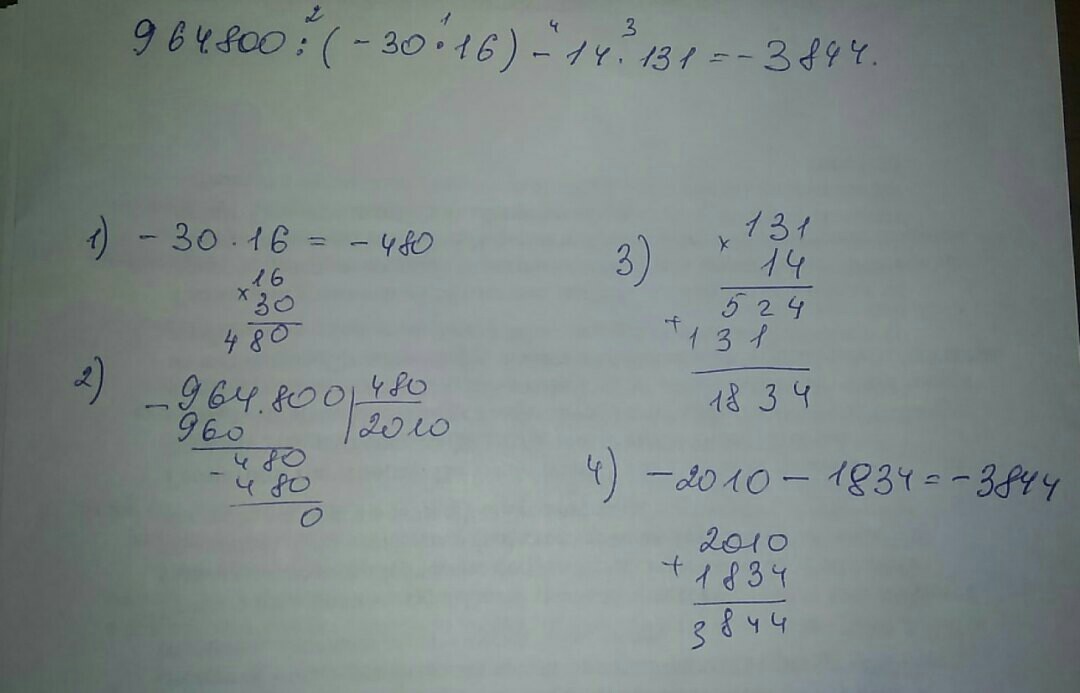 964800 : ( - 30 · 16 ) - 14 · 131 = - 3844.
2 1 4 3
1) - 30 · 16 = - 480
× 16
30
480
2) - 964.800 | 480
960 | 2010
- 480
480
0
3) × 131
14
524
+ 131
1834
4) - 2010 - 1834 = - 3844
+ 2010
1834
3844